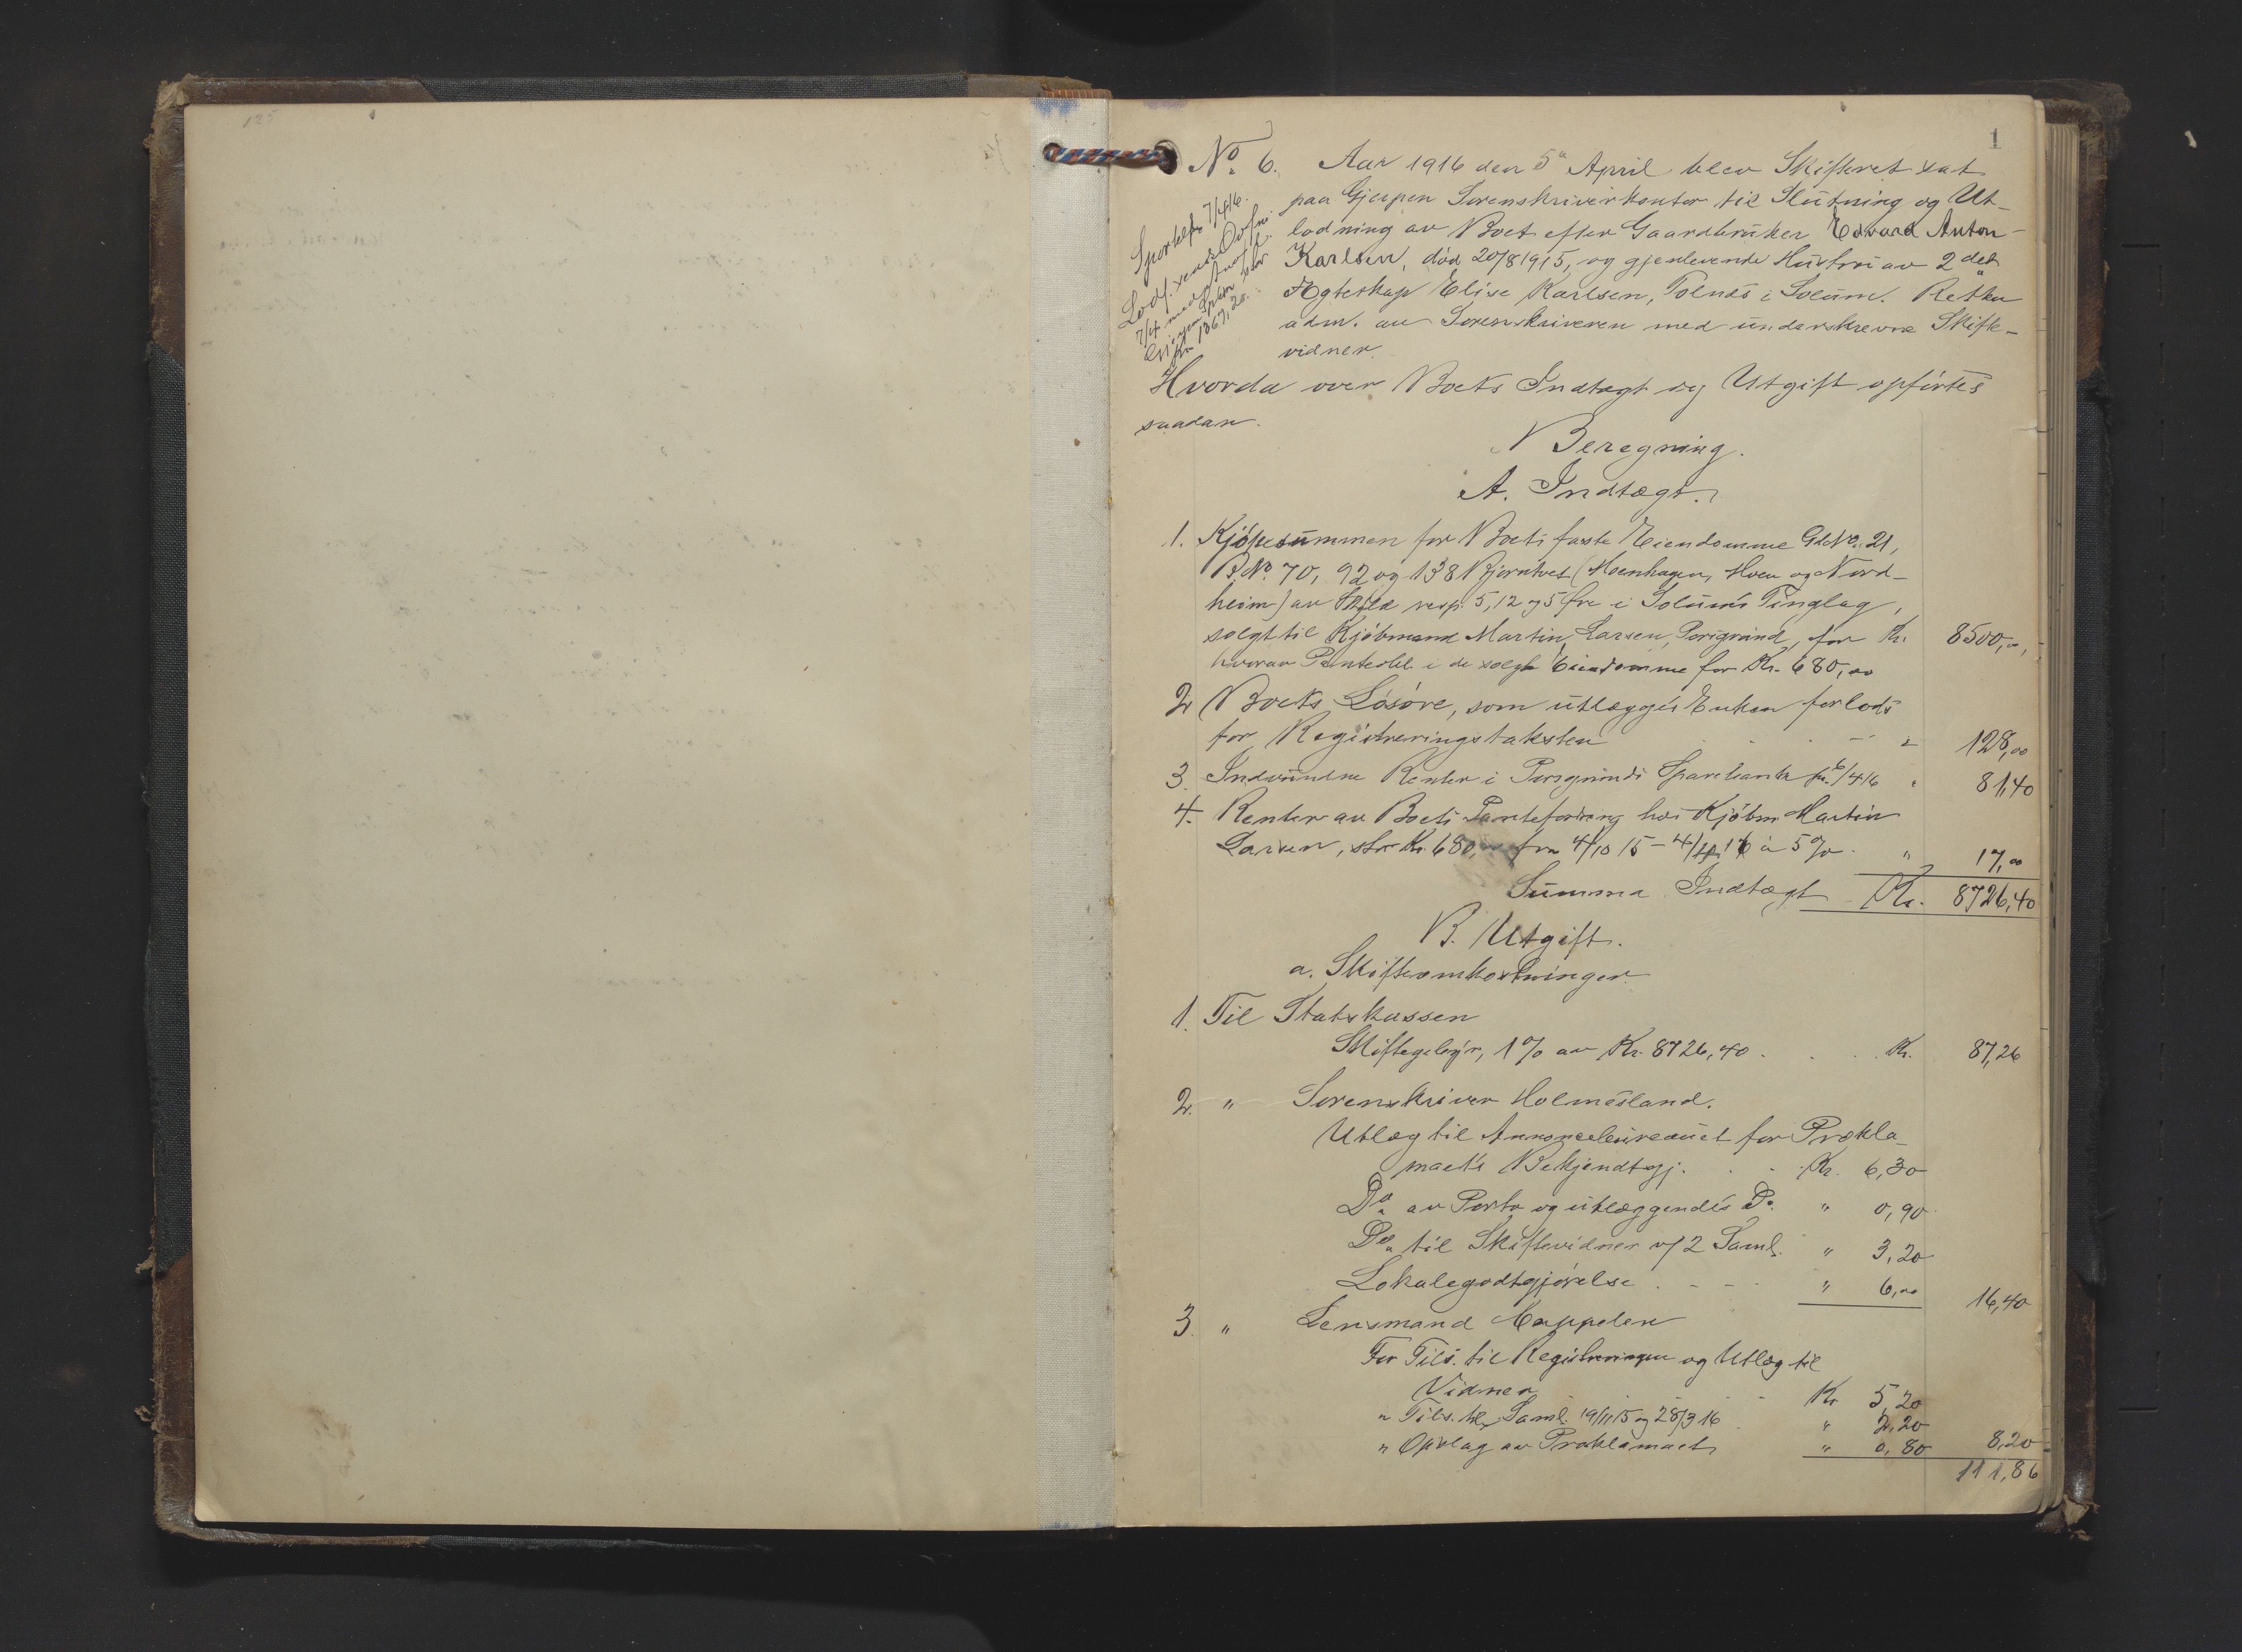 125
1
No. 6. Aar 1916 den 5te April blev Skifteret sat
paa Gjerpen Sorenskriverkontor til Slutning og Ut-
lodning av Boet efter Gaardbruker Edvard Anton
Karlsen, död 20/8 1915, og gjenlevende Hustru av 2det
Ægteskap Elise Karlsen, Tolnes i Solum. Retten
adm. av Sorenskriveren med underskrevne Skifte-
vidner.
Sportelf. 7/4 16.
Lodf. sendt
7/4 med
Kr. 1367,20.
Hvorda over Boets Indtægt og Utgift opførtes
saadan.
Beregning.
A. Indtægt.
1. Kjöpesummen for Boets faste Eiendomme G.No. 21,
B.No. 70, 92 og 138 Bjørntvet (Moenhagen, Moen og Nord-
heim) av Skyld resp. 5, 12 og 5 Øre i Solums Tinglag,
solgt til Kjöbmand Martin Larsen, Porsgrund, for Kr. 8500,00
hvorav Panteobl. i de solgte Eiendomme for Kr. 680,00
2 Boets Lösöre, som utlægges Enken forlods
for Registreringstaksten " 128,00
3. Indvundne Renter i Porsgrunds Sparebank pr. 6/4 16 " 81,40
4. Renter av Boets Pantefordring hos Kjöbm. Martin
Larsen, stor Kr. 680,00 fra 4/10 15 - 4/4 16 à 5% " 17,00
Summa Indtægt Kr. 8726,40
B. Utgift.
a. Skifteomkostninger.
1. Til Statskassen
Skiftegebyr, 1% av Kr. 8726,40 . . . Kr. 87,26
2. " Sorenskriver Holmesland.
Utlæg til Annoncebureauet for Prokla-
maets Bekjendtgj. . . Kr. 6,30
Do. av Porto og utlæggendes Do. " 0,90
Do. til Skiftevidner v/ 2 Saml. " 3,20
Lokalegodtgjörelse . - - " 6,00 16,40
3. " Lensmand Cappelen
For Tils. til Registreringen og Utlæg til
Vidner Kr. 5,20
" Tils. til Saml. 19/11 15 og 28/3 16 " 2,20
" Opslag av Proklamaet " 0,80 8,20
111,86